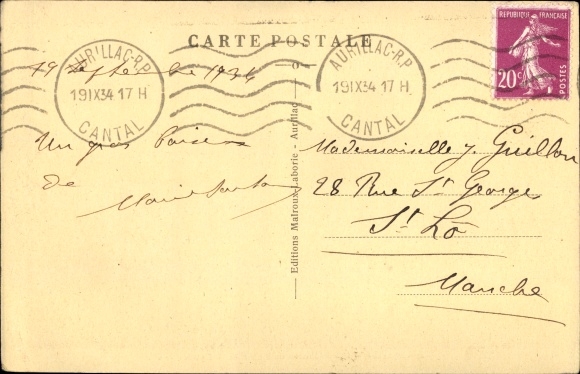 CARTE POSTALE
RÉPUBLIQUE FRANÇAISE
20c
POSTES
AURILLAC-R.P.
19 IX 34 17 H
CANTAL
AURILLAC-R.P.
19 IX 34 17 H
CANTAL
19 septembre 1934
Un gros baiser
de
Editions Malroux-Laborie - Aurillac
Mademoiselle J. Guillon
28 Rue St Georges
St Lô
Manche